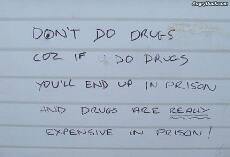 DON'T DO DRUGS
COZ IF DO DRUGS
YOU'LL END UP IN PRISON
AND DRUGS ARE REALLY
EXPENSIVE IN PRISON!